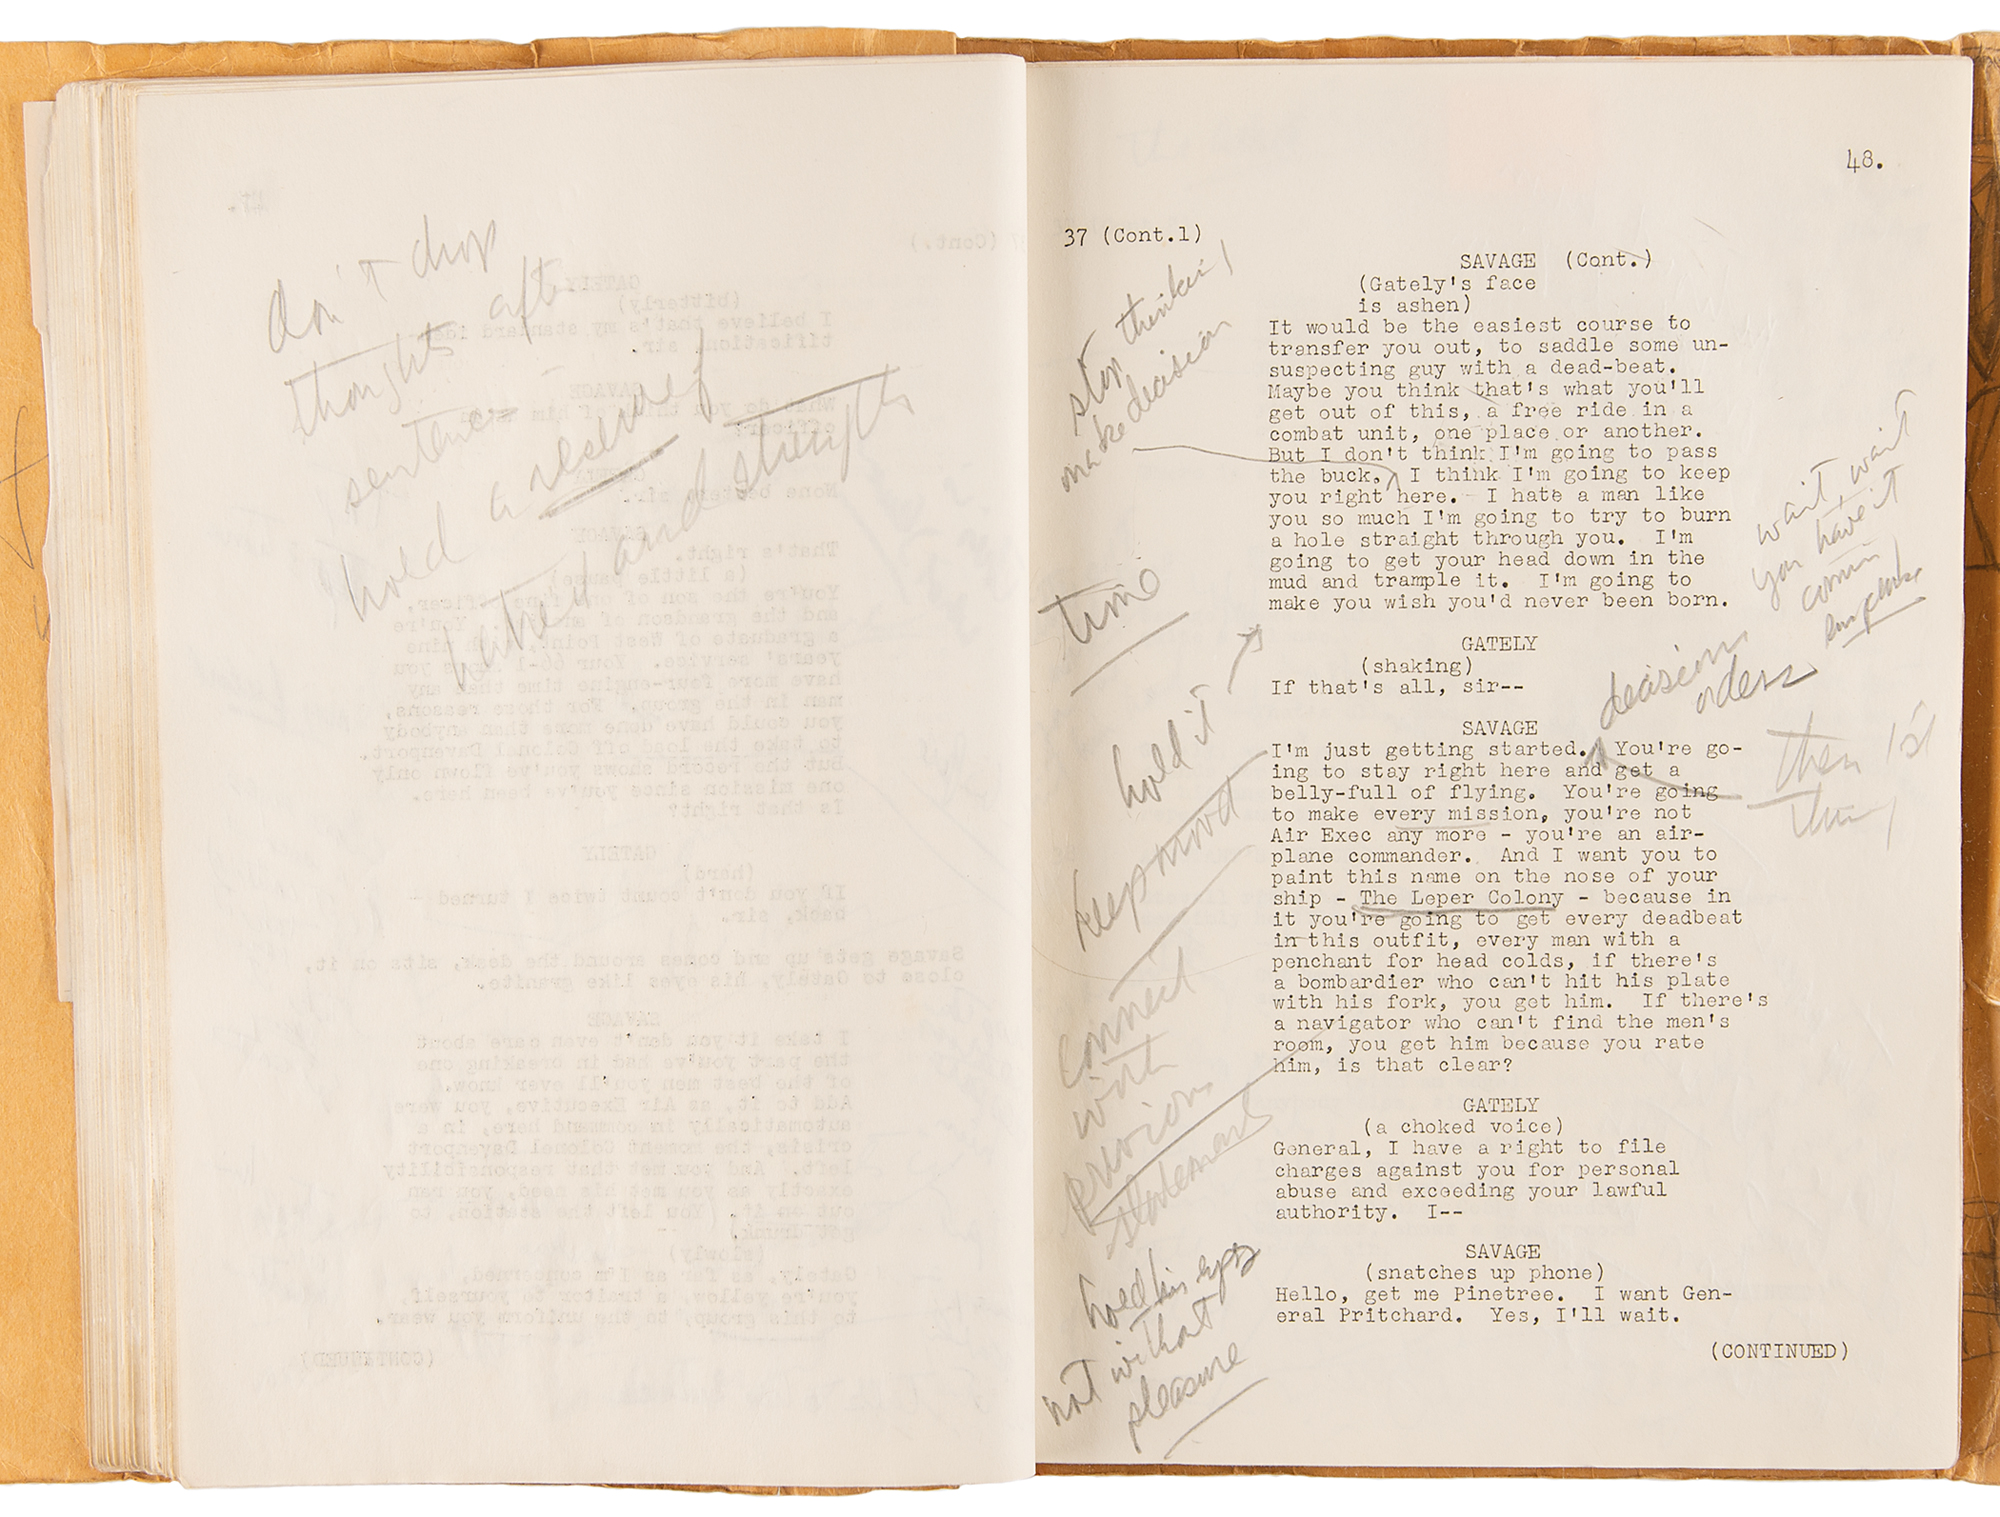 don't drop
thoughts after
sentence
hold a reserve of
power and strength
48.
37 (Cont.1)
SAVAGE (Cont.)
(Gately's face
is ashen)
It would be the easiest course to
transfer you out, to saddle some un-
suspecting guy with a dead-beat.
Maybe you think that's what you'll
get out of this, a free ride in a
combat unit, one place or another.
But I don't think I'm going to pass
the buck. I think I'm going to keep
you right here. I hate a man like
you so much I'm going to try to burn
a hole straight through you. I'm
going to get your head down in the
mud and trample it. I'm going to
make you wish you'd never been born.
GATELY
(shaking)
If that's all, sir--
SAVAGE
I'm just getting started. You're go-
ing to stay right here and get a
belly-full of flying. You're going
to make every mission, you're not
Air Exec any more - you're an air-
plane commander. And I want you to
paint this name on the nose of your
ship - The Leper Colony - because in
it you're going to get every deadbeat
in this outfit, every man with a
penchant for head colds, if there's
a bombardier who can't hit his plate
with his fork, you get him. If there's
a navigator who can't find the men's
room, you get him because you rate
him, is that clear?
GATELY
(a choked voice)
General, I have a right to file
charges against you for personal
abuse and exceeding your lawful
authority. I--
SAVAGE
(snatches up phone)
Hello, get me Pinetree. I want Gen-
eral Pritchard. Yes, I'll wait.
(CONTINUED)
stop thinking
make decision
time
hold it
keep mood
connect
with
previous
statements
hold his eyes
not without
pleasure
wait, wait
you have it
coming
decision
orders
then